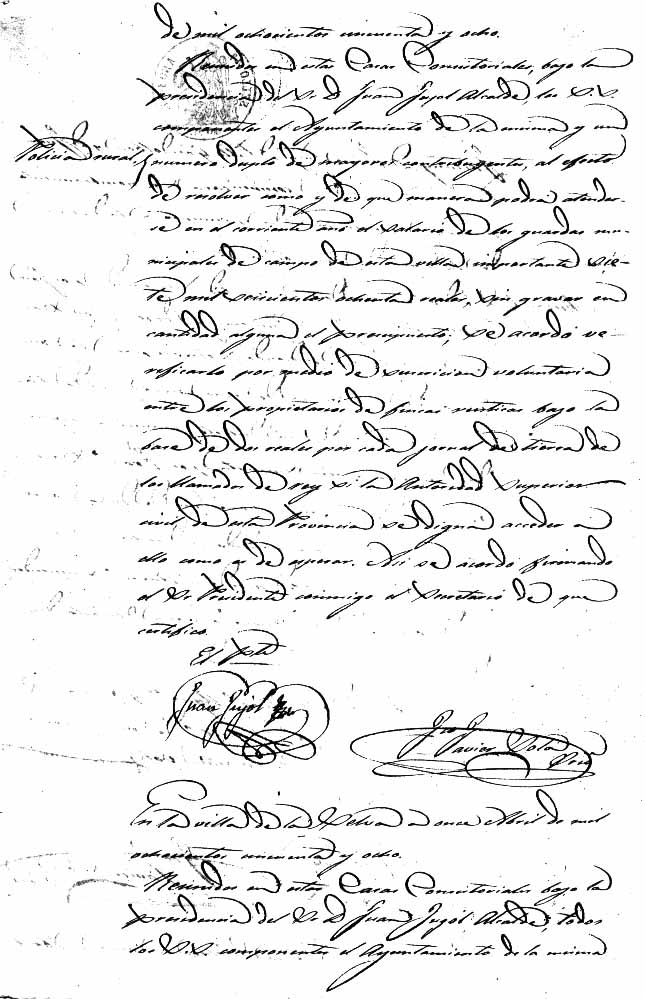 de mil ochocientos cincuenta y ocho.
Reunidos en estas Casas Consistoriales, bajo la
presidencia del Sr. D Juan Jujol Alcalde, los S.S.
componentes el Ayuntamiento de la misma y un
Policia rural.
numero duplo de mayores contribuyentes, al efecto
de resolver como y de que manera podra atender-
se en el corriente año el salario de los guardas mu-
nicipales de campo de esta villa importante sie-
te mil seiscientos ochenta reales, sin gravar en
cantidad alguna el presupuesto; se acordó ve-
rificarlo por medio de suscricion voluntaria
entre los propietarios de fincas rusticas bajo la
base de dos reales por cada jornal de tierra de
los llamados de rey si la Autoridad Superior
civil de esta Provincia se digna acceder a
ello como es de esperar. Asi se acordó firmando
el Sr. Presidente conmigo el Secretario de que
certifico.
El Pte
Juan Jujol
Fco Javier
En la villa de la Selva a once Abril de mil
ochocientos cincuenta y ocho.
Reunidos en estas Casas Consistoriales bajo la
presidencia del Sr. D Juan Jujol Alcalde, todos
los S.S. componentes el Ayuntamiento de la misma